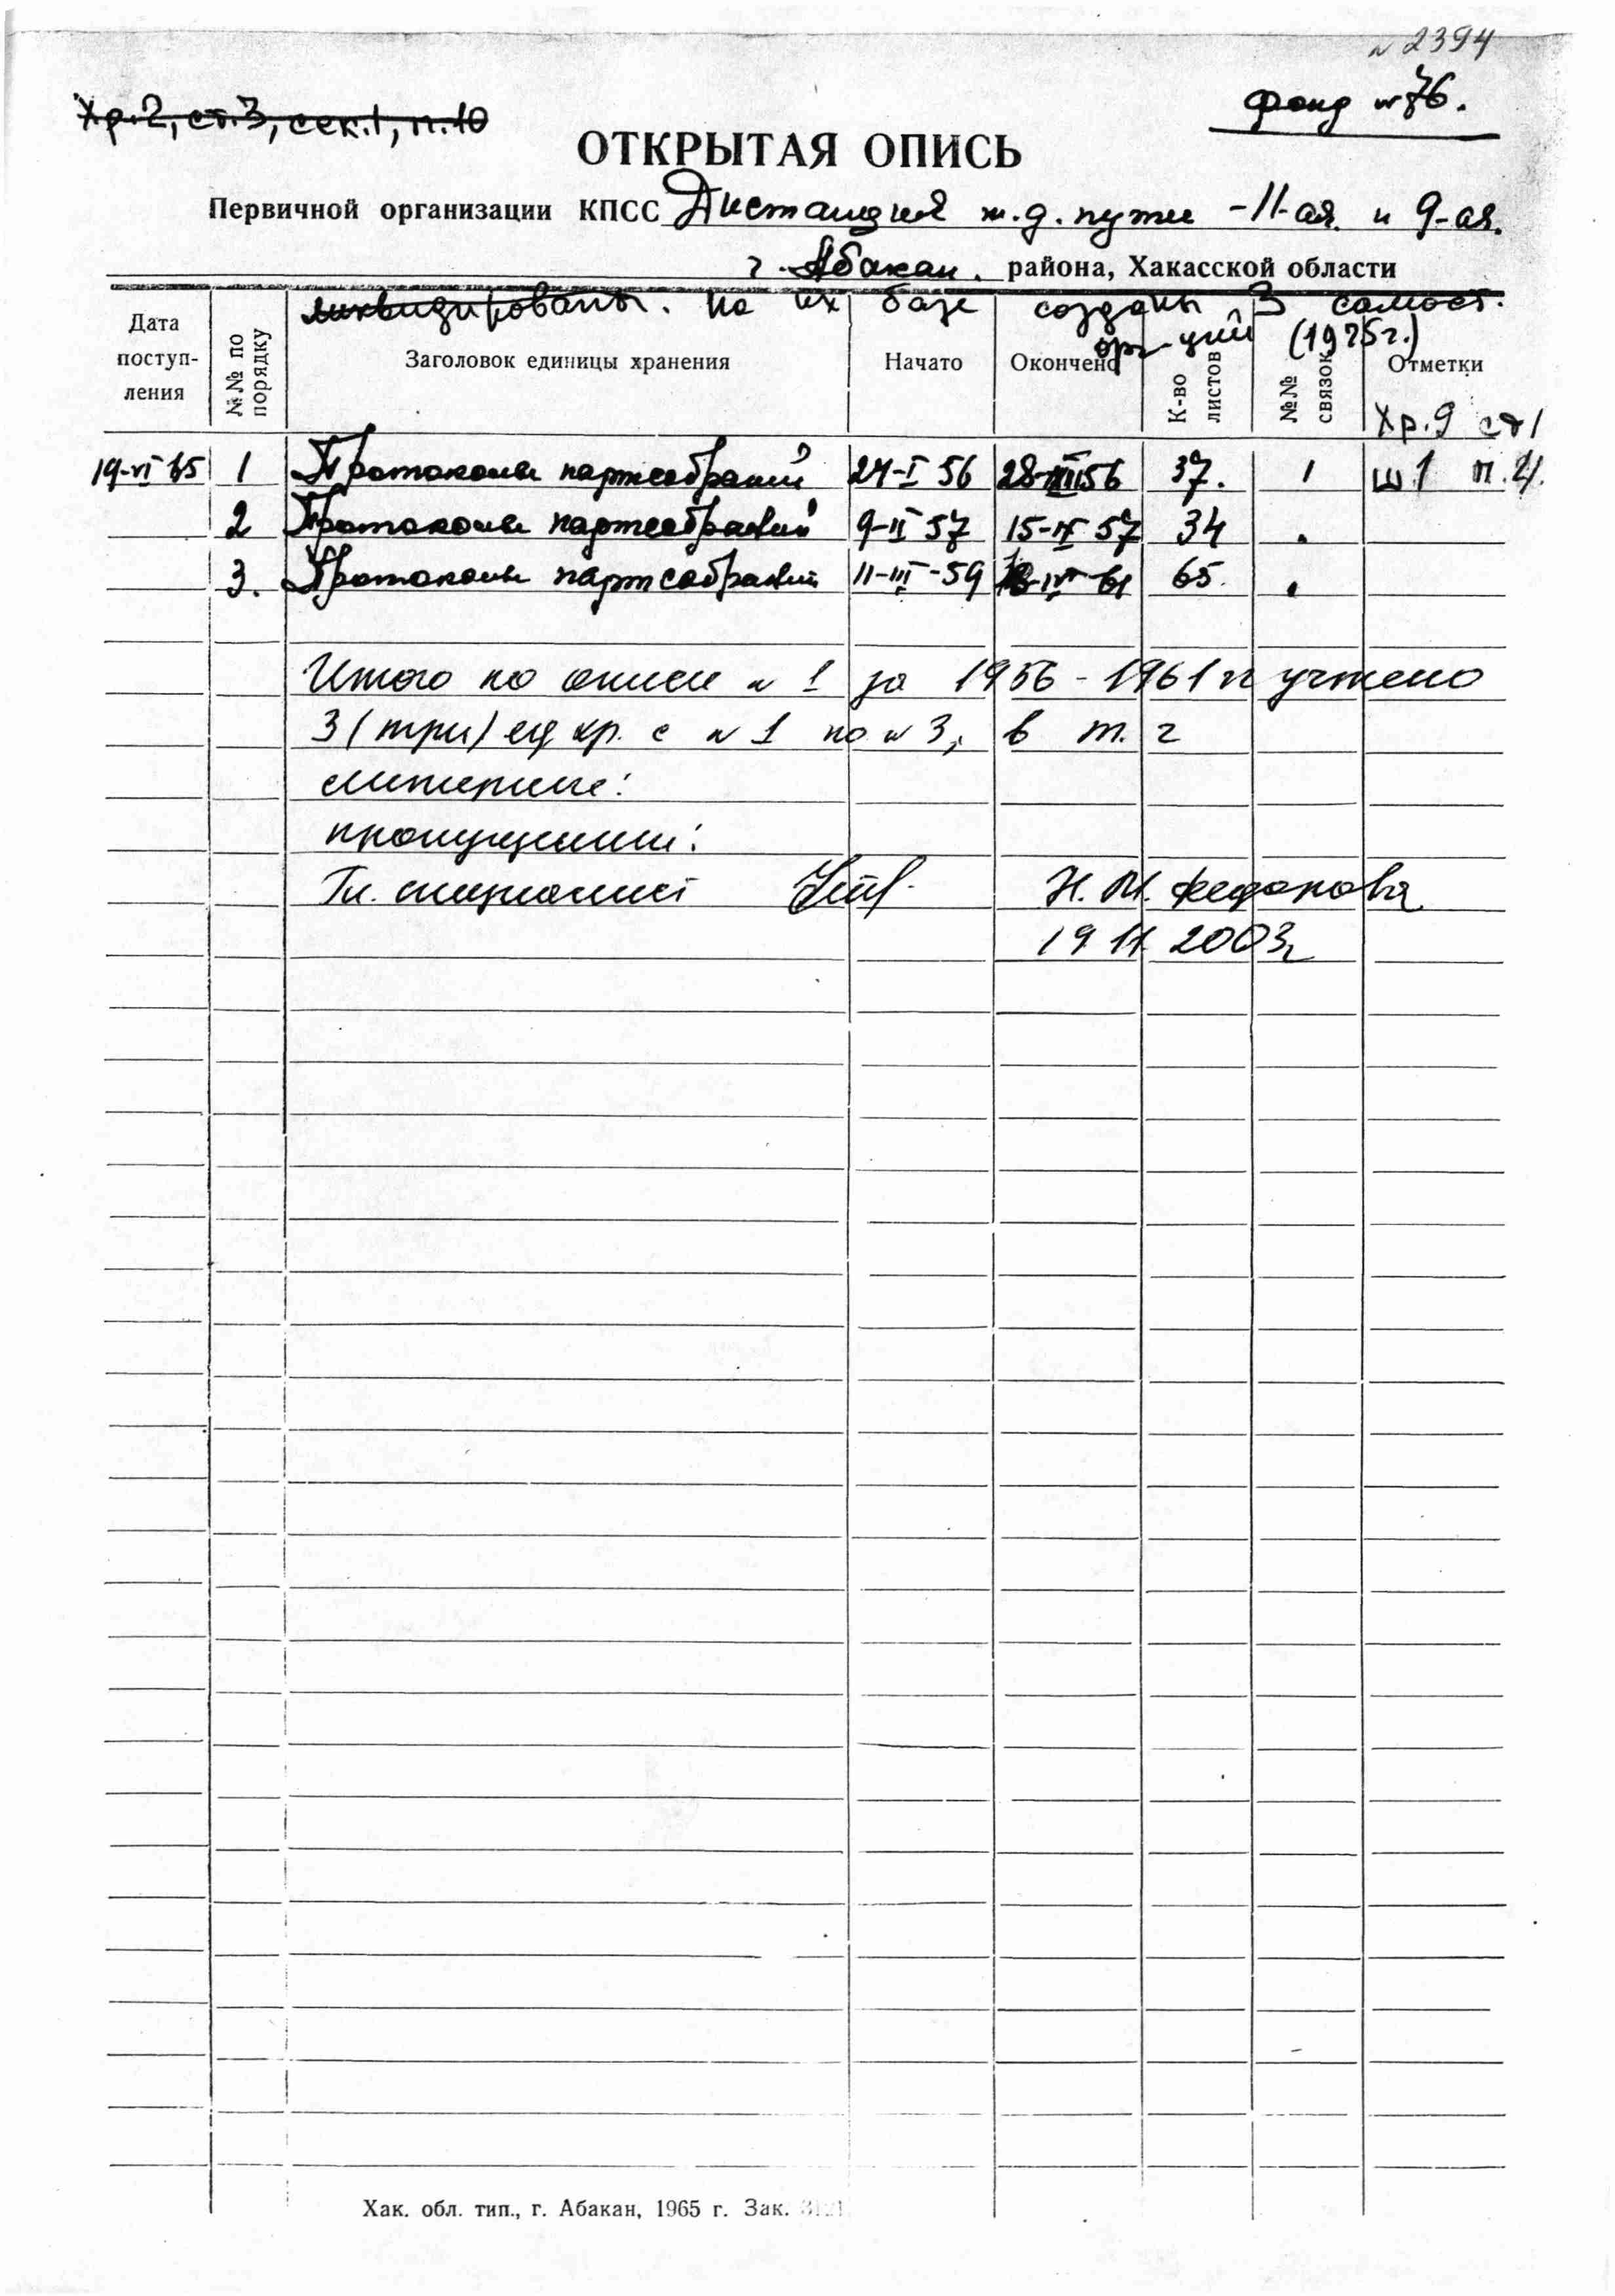 № 2394
Хр.2, ст.3, сек.1, п.10
фонд № 76.
ОТКРЫТАЯ ОПИСЬ
Первичной организации КПСС Дистанция ж.д. пути -11-ая и 9-ая.
г. Абакан. района, Хакасской области
ликвидированы. На их базе созданы 3 самост.
орг-ций (1975г.)
Дата поступ-ления №№ по порядку Заголовок единицы хранения Начато Окончено К-во листов №№ связок Отметки
Хр.9 ст1
19-VI 65 1 Протоколы партсобраний 24-I 56 28-XII 56 37. 1 ш1 п.4.
2 Протоколы партсобраний 9-II 57 15-IX 57 34 "
3. Протоколы партсобраний 11-III-59 61 65. "
Итого по описи № 1 за 1956-1961 гг учтено
3 (три) ед хр. с № 1 по № 3, в т. ч
литерные:
пропущенные:
Гл. специалист Н. М. Федорова
19 11. 2003г
Хак. обл. тип., г. Абакан, 1965 г. Зак.